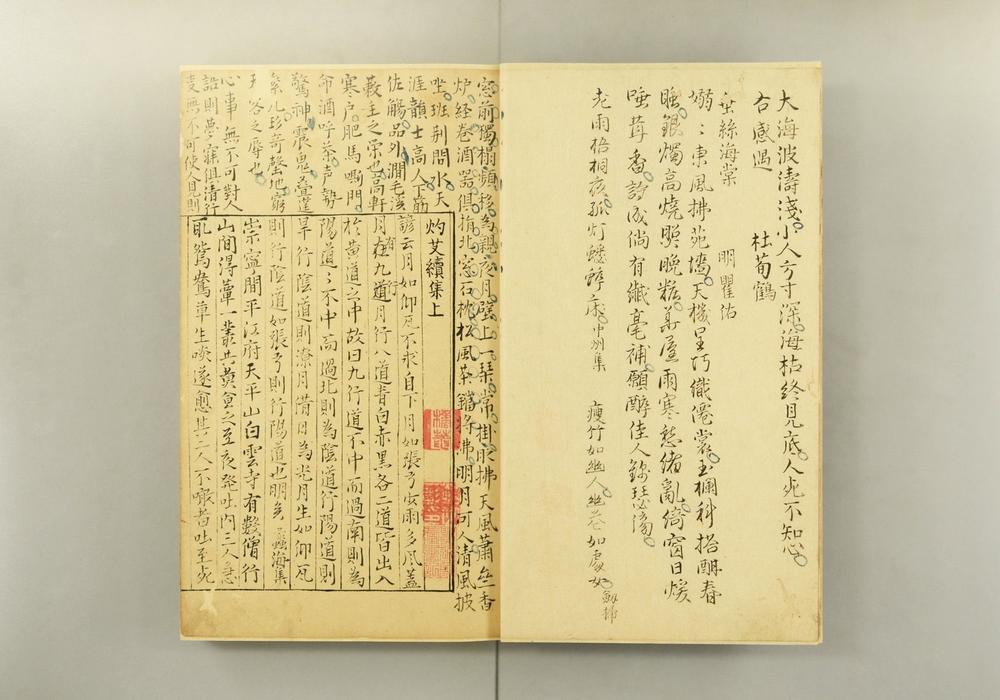 大海波濤淺小人方寸深海枯終見底人死不知心
右感遇　杜荀鶴
垂絲海棠　明瞿佑
嫋〻東風拂苑墻天機呈巧織僊裳玉欄斜搭酣春
睡銀燭高燒照晚粧弄屋雨寒愁緒亂綺窗日煖
唾茸香詩成倘有纖毫補願醉佳人錦瑟傍
老雨梧桐夜孤灯蟋蟀床中州集　瘦竹如幽人幽花如處女
窓前獨榻頻移為親夜月壁上一琴常掛時拂天風蕭然香
炉経卷酒器俱捐北窓石枕松風茶鐺將沸明月可人清風披
坐班荆問水天
涯韻士高人下箸
佐觴品外澗毛溪
蔌主之榮也高軒
寒户肥馬嘶門
命酒呼茶声勢
驚神震鬼疊筵
累几珍奇罄地窮
天客之辱也
心事無不可對人
語則夢寐俱清行
灼艾續集上
諺云月如仰瓦不求自下月如張弓少雨多風蓋
月在九道月行八道青白赤黑各二道皆出入
於黄道之中故曰九行道不中而過南則為
陽道〻不中而過北則為陰道行陽道則
旱行陰道則潦月借日為光月生如仰瓦
則行陰道如張弓則行陽道也明矣 蠡海集
崇寧間平江府天平山白雲寺有數僧行
山間得蕈一叢共煑食之至夜發吐内三人急
取鴛鴦草生啖遂愈其二人不噉者吐至死